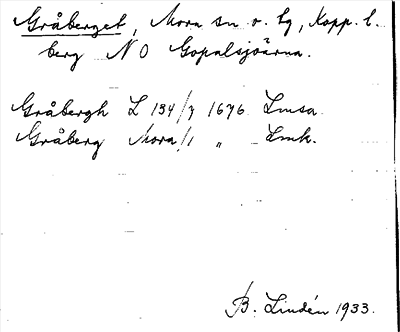 Gråberget, Mora sn o. tg, Kopp. l.
berg N O Gopalsjöarna.
Gråbergh L 134/7 1676 Lmsa.
Gråberg Mora/1 „ Lmk.
B. Lindén 1933.